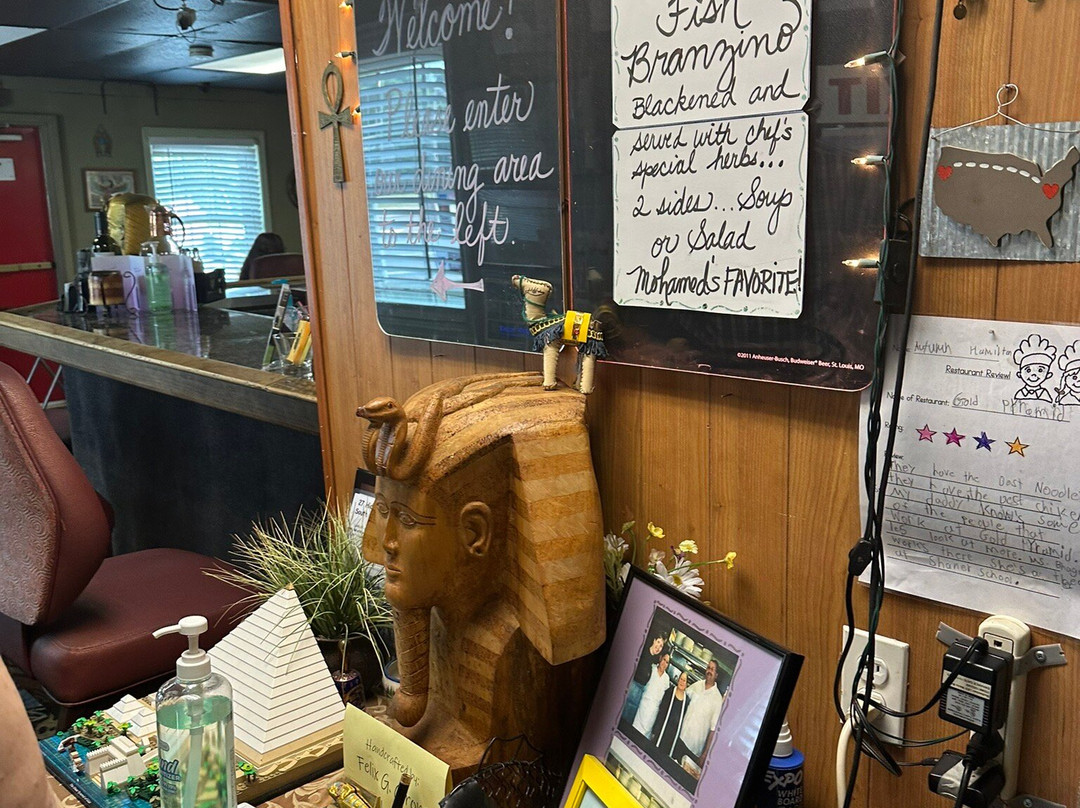 Welcome!
Please enter
our dining area
to the left.
Fish
Branzino
Blackened and
served with chef's
special herbs...
2 sides... Soup
or Salad
Mohamed's FAVORITE!
©2011 Anheuser-Busch, Budweiser® Beer, St. Louis, MO
Autumn Hamilton
Restaurant Review!
Name of Restaurant: Gold
They have the Best Noodles
they have the best
My daddy knows some
of the people that
work at Gold Pyramid.
works there.
Shaner school.
Handcrafted by:
Felix G.
EXPO
WHITE